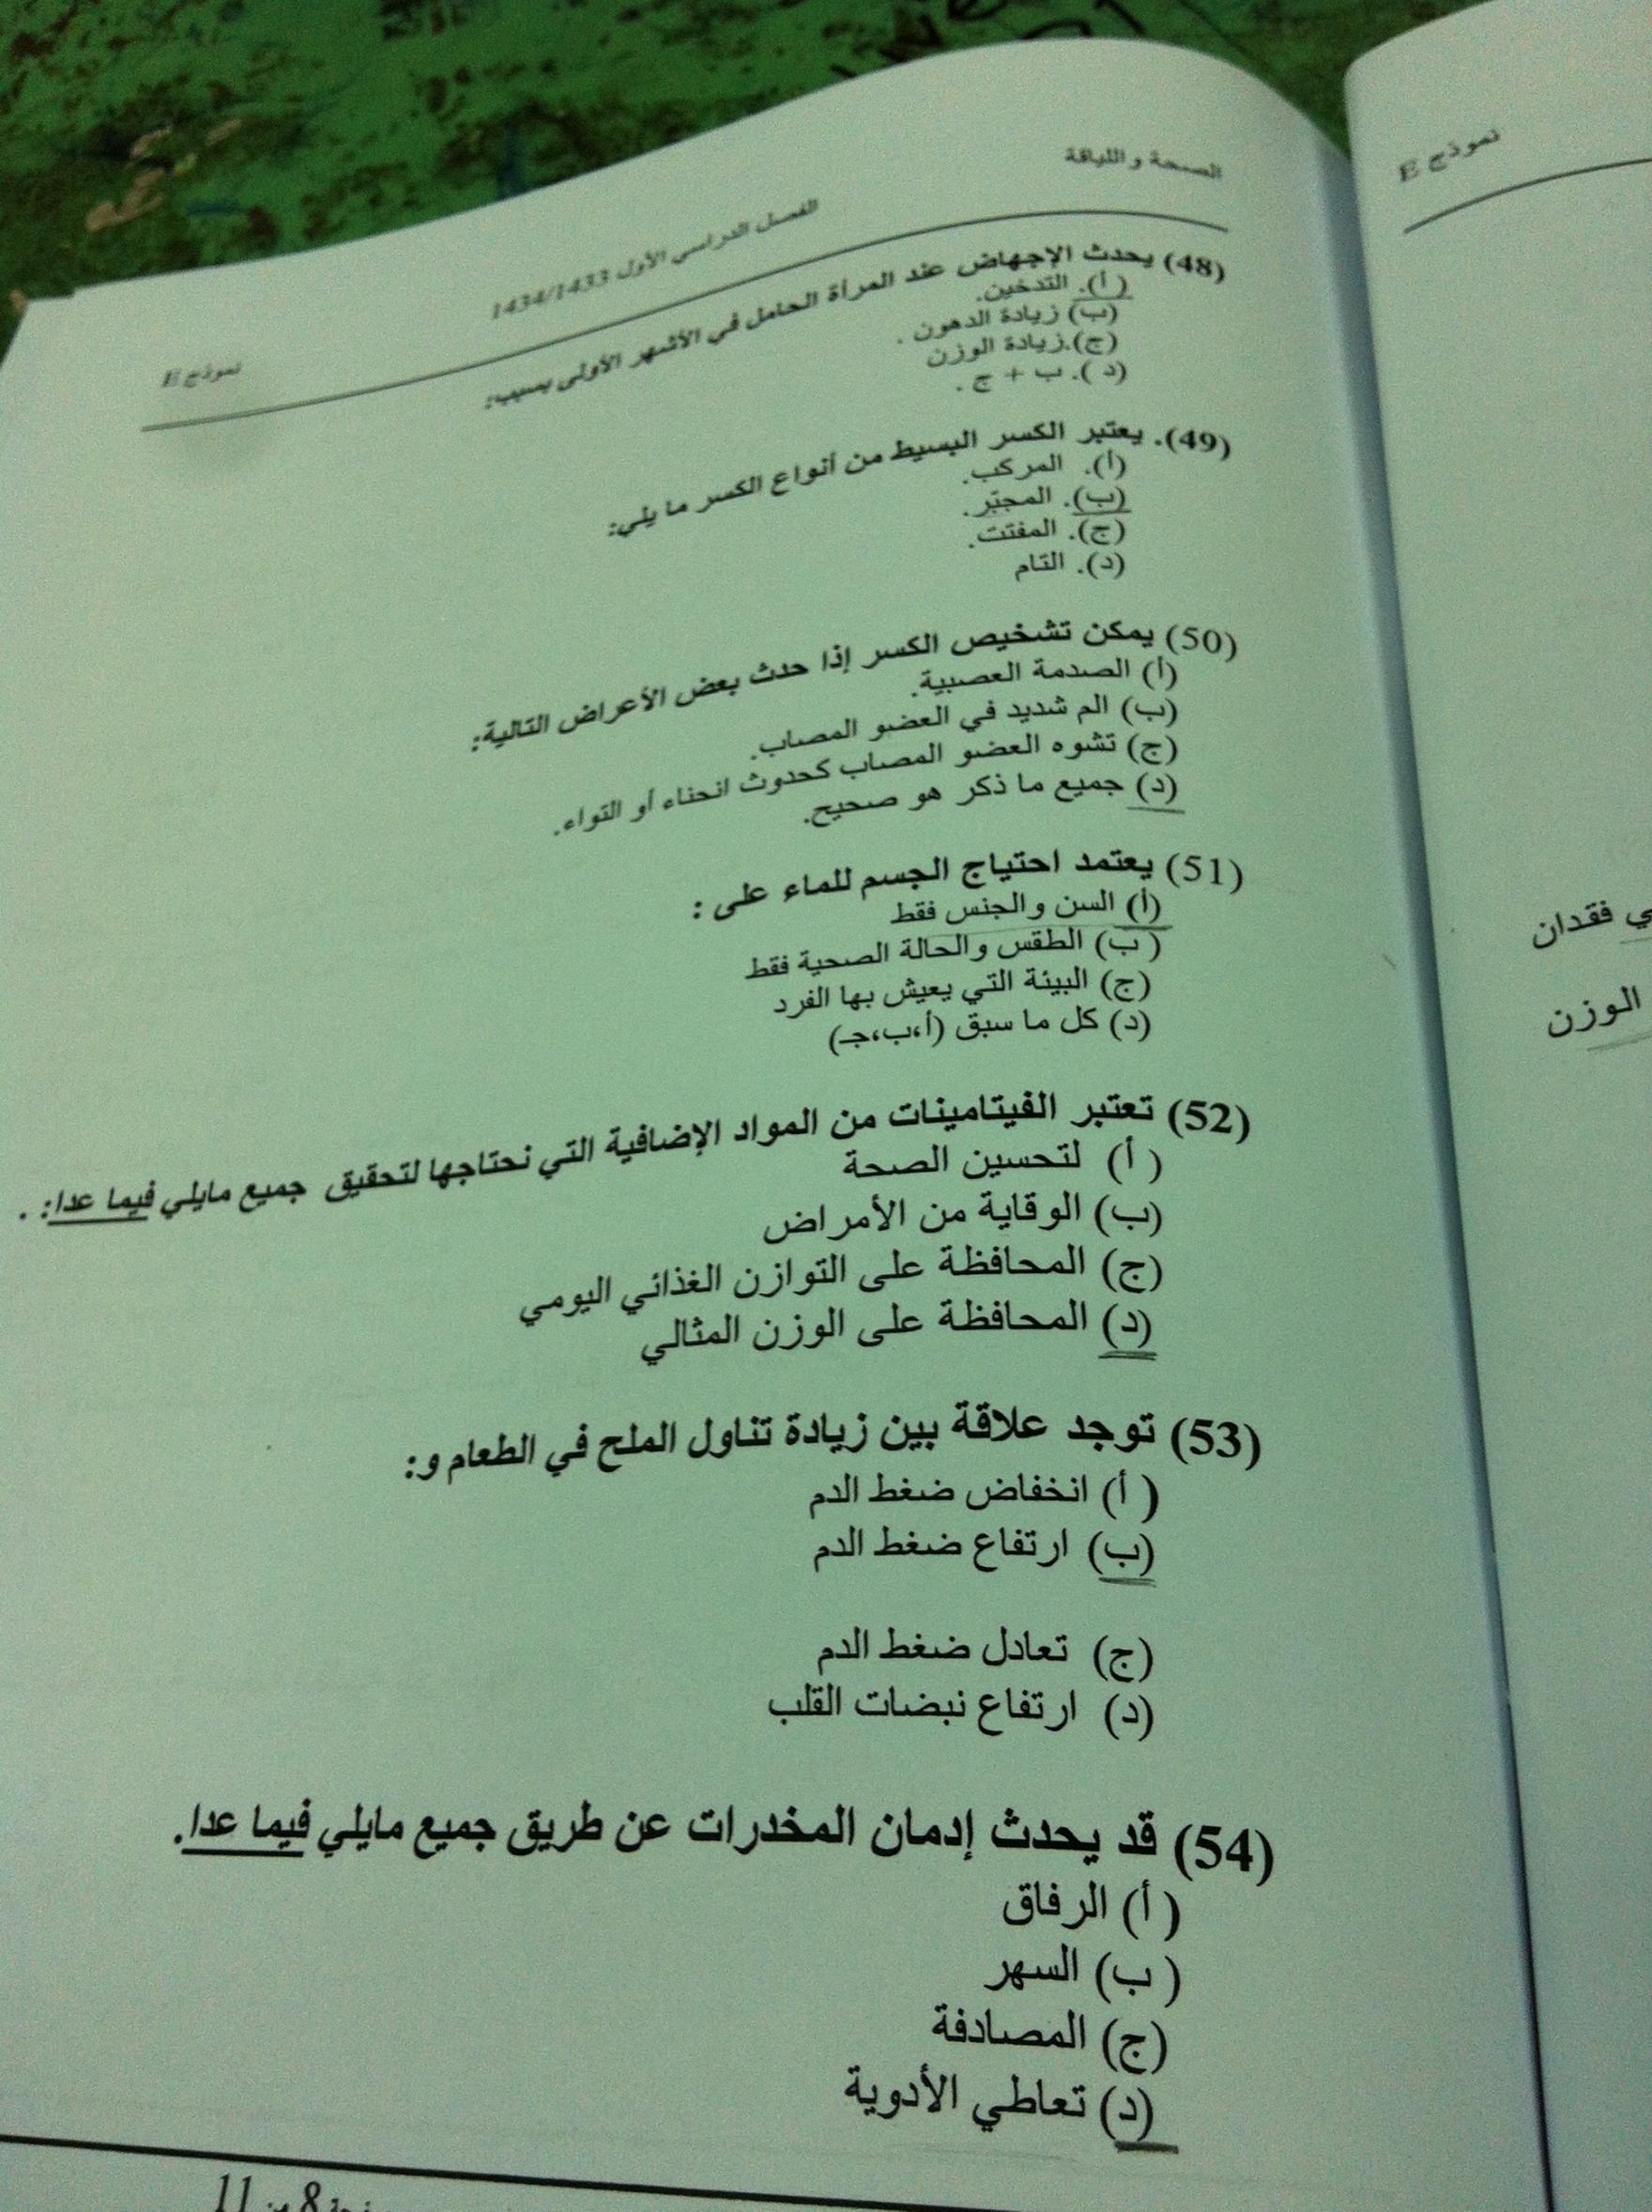 الصحة و اللياقة
الفصل الدراسي الأول 1434/1433
نموذج E
(48) يحدث الإجهاض عند المرأة الحامل في الأشهر الأولى بسبب:
(أ). التدخين.
(ب) زيادة الدهون .
(ج).زيادة الوزن
(د ). ب + ج .
(49). يعتبر الكسر البسيط من أنواع الكسر ما يلي:
(أ). المركب.
(ب). المجبّر.
(ج). المفتت.
(د). التام
(50) يمكن تشخيص الكسر إذا حدث بعض الأعراض التالية:
(أ) الصدمة العصبية.
(ب) الم شديد في العضو المصاب.
(ج) تشوه العضو المصاب كحدوث انحناء أو التواء.
(د) جميع ما ذكر هو صحيح.
(51) يعتمد احتياج الجسم للماء على :
(أ) السن والجنس فقط
( ب) الطقس والحالة الصحية فقط
(ج) البيئة التي يعيش بها الفرد
(د) كل ما سبق (أ،ب،جـ)
(52) تعتبر الفيتامينات من المواد الإضافية التي نحتاجها لتحقيق جميع مايلي فيما عدا: .
( أ) لتحسين الصحة
(ب) الوقاية من الأمراض
(ج) المحافظة على التوازن الغذائي اليومي
(د) المحافظة على الوزن المثالي
(53) توجد علاقة بين زيادة تناول الملح في الطعام و:
( أ) انخفاض ضغط الدم
(ب) ارتفاع ضغط الدم
(ج) تعادل ضغط الدم
(د) ارتفاع نبضات القلب
(54) قد يحدث إدمان المخدرات عن طريق جميع مايلي فيما عدا.
( أ) الرفاق
( ب) السهر
(ج) المصادفة
(د) تعاطي الأدوية
8 من 11
نموذج E
فقدان
الوزن